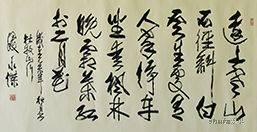 遠上寒山
石徑斜白
雲生處有
人家停車
坐愛楓林
晚霜葉紅
於二月花
杜牧山行